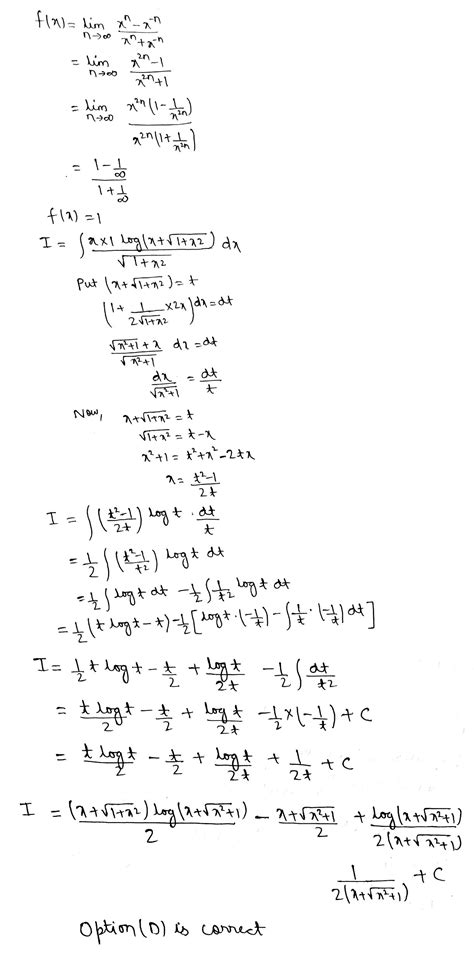 f(x) = lim n→∞ (xⁿ - x⁻ⁿ)/(xⁿ + x⁻ⁿ)
= lim n→∞ (x²ⁿ - 1)/(x²ⁿ + 1)
= lim n→∞ x²ⁿ(1 - 1/x²ⁿ)/x²ⁿ(1 + 1/x²ⁿ)
= (1 - 1/∞)/(1 + 1/∞)
f(x) = 1
I = ∫ (x×1 log(x+√(1+x²)))/√(1+x²) dx
Put (x+√(1+x²)) = t
(1 + 1/(2√(1+x²)) ×2x) dx = dt
(√(x²+1) + x)/√(x²+1) dx = dt
dx/√(x²+1) = dt/t
Now, x+√(1+x²) = t
√(1+x²) = t-x
x²+1 = t²+x²-2tx
x = (t²-1)/2t
I = ∫ ((t²-1)/2t) log t · dt/t
= 1/2 ∫ ((t²-1)/t²) log t dt
= 1/2 ∫ log t dt - 1/2 ∫ 1/t² log t dt
= 1/2 (t log t - t) - 1/2 [log t · (-1/t) - ∫ 1/t · (-1/t) dt]
I = 1/2 t log t - t/2 + log t/2t - 1/2 ∫ dt/t²
= t log t/2 - t/2 + log t/2t - 1/2 × (-1/t) + C
= t log t/2 - t/2 + log t/2t + 1/2t + C
I = (x+√(1+x²)) log(x+√(x²+1))/2 - (x+√(x²+1))/2 + log(x+√(x²+1))/2(x+√(x²+1))
1/2(x+√(x²+1)) + C
Option (D) is correct